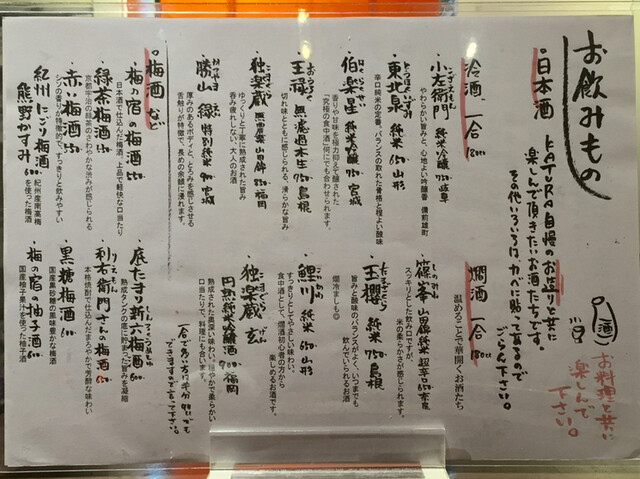 お飲みもの
・日本酒
KATURA自慢のお造りと共に
楽しんで頂きたいお酒たちです。
その他いろいろは、カベに貼ってあるので
ごらん下さい。
酒
お料理と共に
楽しんで
下さい。
冷酒、一合 180cc
小左衛門 純米吟醸 750 岐阜
やわらかい旨みと、心地よい吟醸香 備前雄町
東北泉 純米 650 山形
辛口純米の定番。バランスの取れた骨格と程よい酸味
伯楽星 純米吟醸 750 宮城
香りや甘味を極力抑えて醸された
「究極の食中酒」何にでも合わせられます。
王祿 無濾過本生 750 島根
切れ味とともに感じられる、滑らかな旨み
独楽蔵 無農薬山田錦 850 福岡
ゆっくりと丁寧に熟成された旨み
呑み疲れしない、大人のお酒
勝山 縁 特別純米 宮城
厚みのあるボディと、とろみを感じさせる
舌触りが特徴で、長めの余韻に浸れます。
燗酒 一合 180cc
温めることで華開くお酒たち
篠峯 山田錦純米 超辛口 650 奈良
スッキリとした飲み口ですが、
米の柔らかさが感じられます。
玉櫻 純米 750 島根
旨みと酸味のバランスがよく、いつまでも
飲んでいられるお酒
燗冷ましも◎
鯉川 純米 650 山形
すっきりとしてやさしい味わい。
食中酒として、燗酒初心者の方から
楽しめるお酒です。
独楽蔵 玄
円熟純米吟醸酒 700 福岡
熟成された奥深い味わい。穏やかで柔らかい
口当たりで、料理にも合います。
一合で多い方は、半分 90ccでも
できますので言って下さい。
・梅酒など
・梅の宿の梅酒 550
日本酒で仕込んだ梅酒。上品で軽快な口当たり
緑茶梅酒 550
京都宇治の緑茶のさわやかな渋みが感じられる
・赤い梅酒 550
シソの香りが特徴的で、すっきりと飲みやすい
紀州にごり梅酒
熊野かすみ 600
紀州産南高梅
を使った梅酒
底たまり新六梅酒 600
熟成タンクの底に貯まった旨いを凝縮
・利右衛門さんの梅酒 600
本格焼酎で仕込んだまろやかで芳醇な味わい
黒糖梅酒 600
国産黒砂糖の風味豊かな梅酒
・梅の宿の柚子酒 600
国産柚子果汁を使った柚子酒